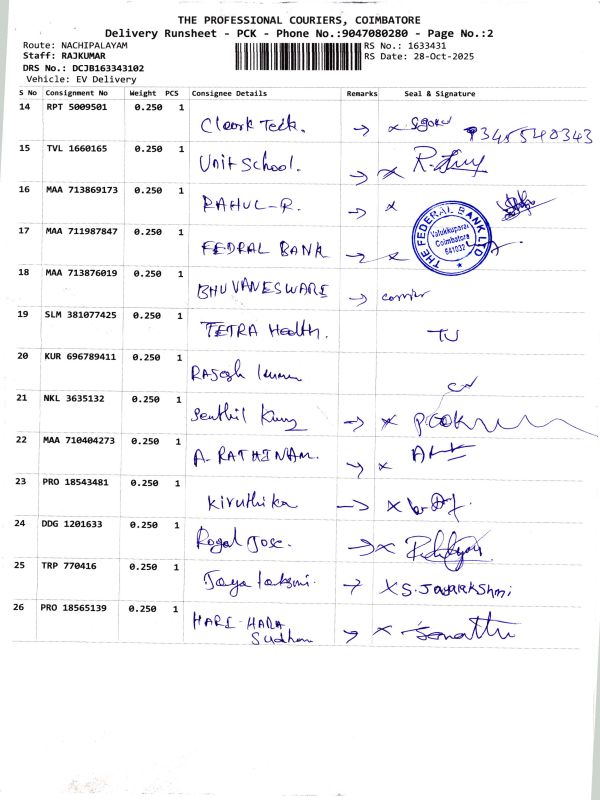 THE PROFESSIONAL COURIERS, COIMBATORE
Delivery Runsheet - PCK - Phone No.:9047080280 - Page No.:2
Route: NACHIPALAYAM
RS No.: 1633431
Staff: RAJKUMAR
RS Date: 28-Oct-2025
DRS No.: DCJB163343102
Vehicle: EV Delivery
S No Consignment No Weight PCS Consignee Details Remarks Seal & Signature
14 RPT 5009501 0.250 1
15 TVL 1660165 0.250 1 Unit School.
16 MAA 713869173 0.250 1 RAHUL-R.
17 MAA 711987847 0.250 1 FEDRAL BANK
THE FEDERAL BANK LTD
Coimbatore
641032
18 MAA 713876019 0.250 1 BHUVANESWARE
19 SLM 381077425 0.250 1 TETRA Health.
20 KUR 696789411 0.250 1
21 NKL 3635132 0.250 1 Senthil
22 MAA 710404273 0.250 1 A. RATHINAM.
23 PRO 18543481 0.250 1 Kiruthika
24 DDG 1201633 0.250 1 Jose.
25 TRP 770416 0.250 1 Jaya S. Jayalakshmi
26 PRO 18565139 0.250 1 HARI-HARA
Sudhan